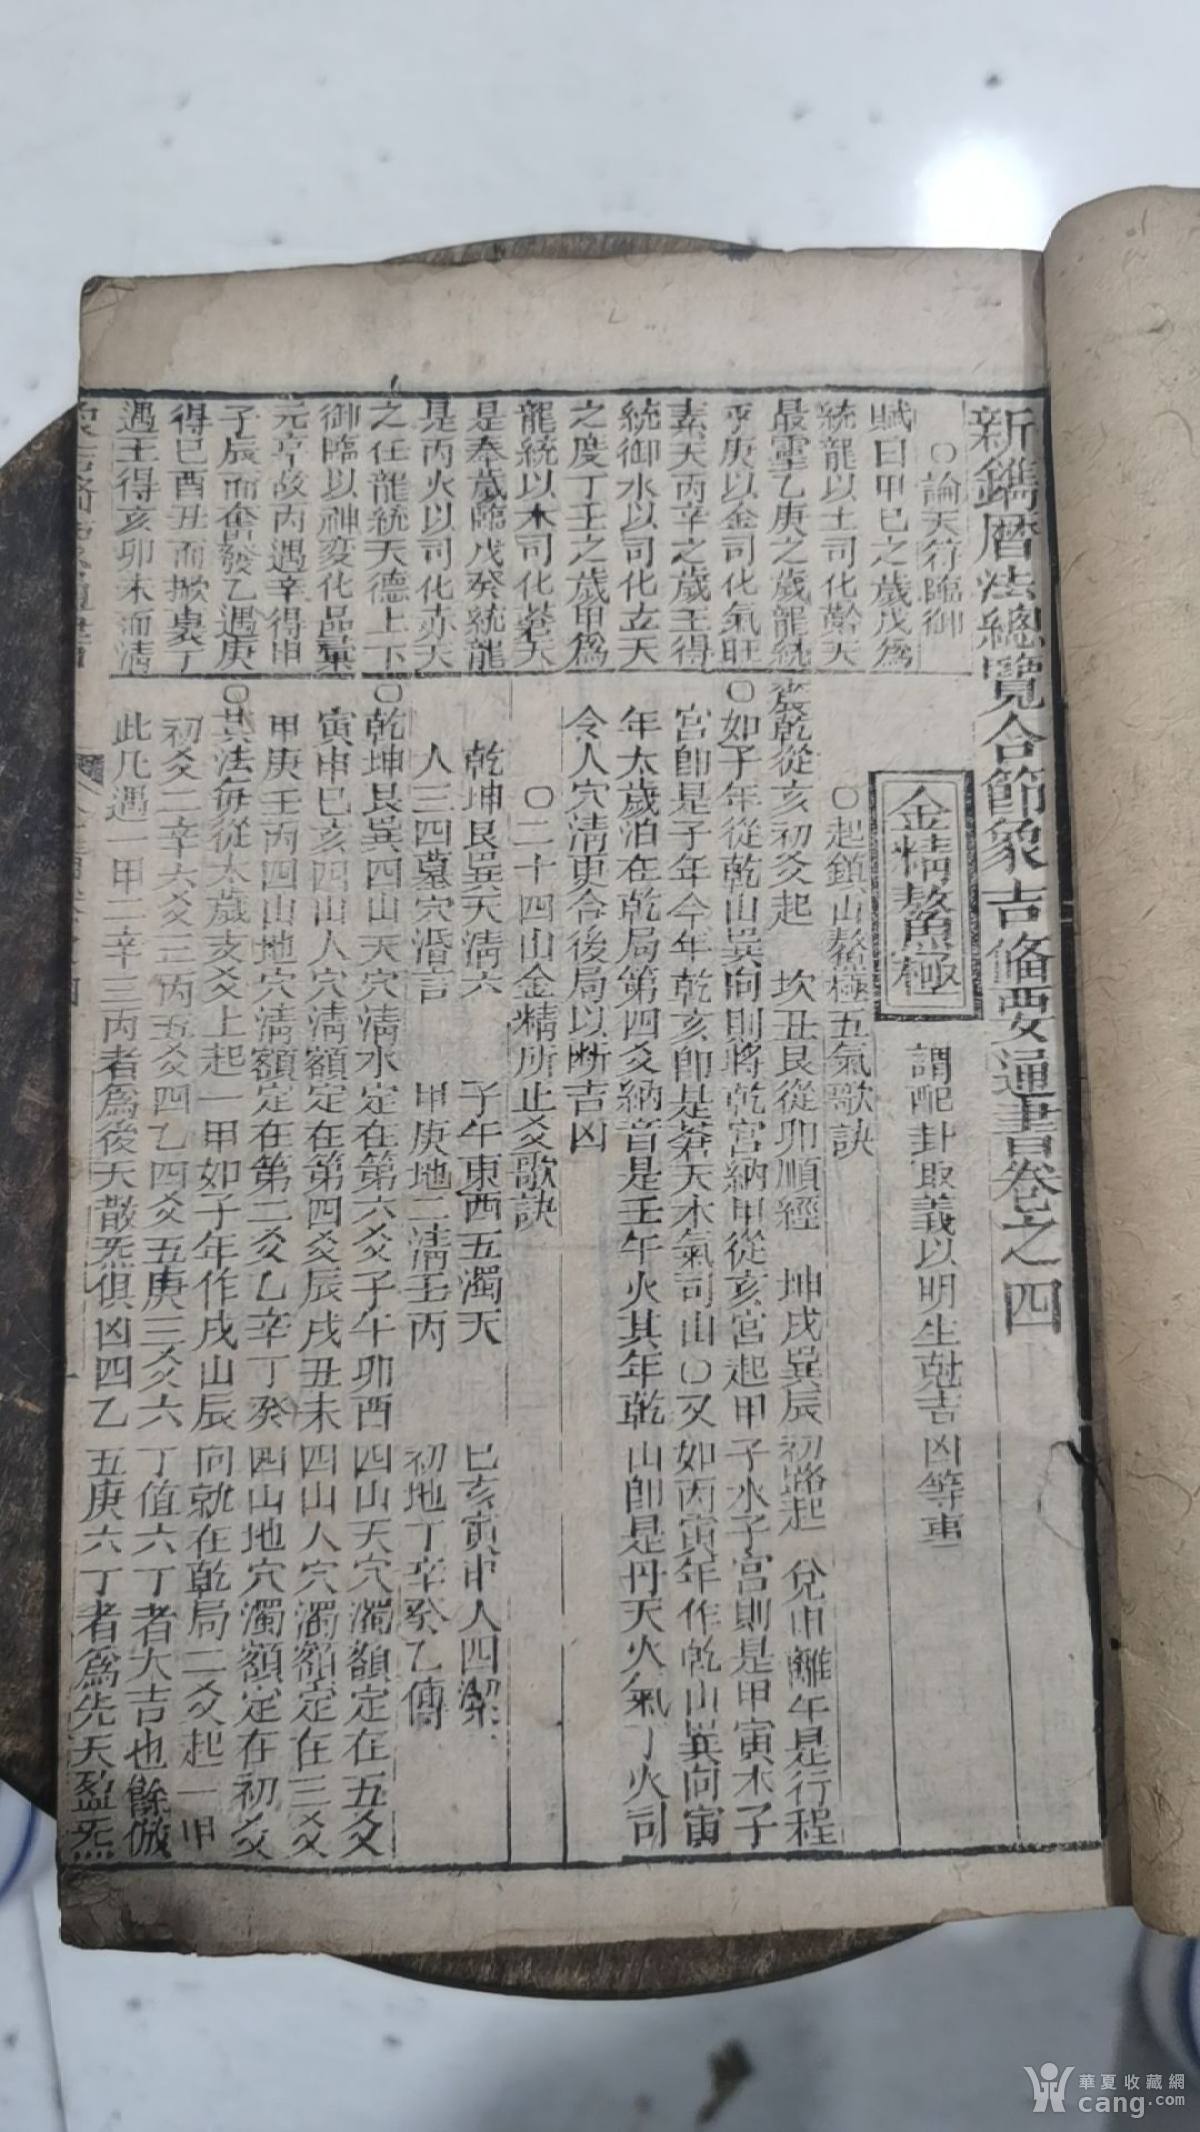 新鐫曆法總覽合節象吉俻要通書卷之四
○論天符臨御
賦曰甲巳之歲戊為
統龍以土司化黅天
最靈乙庚之歲龍統
乎庚以金司化氣旺
素天丙辛之歲壬得
統御水以司化玄天
之度丁壬之歲甲為
龍統以木司化蒼天
是奉歲臨戊癸統龍
是丙火以司化赤天
之任龍統天德上下
御臨以神変化品彙
元亨故丙遇辛得申
子辰而奮發乙遇庚
得巳酉丑而掀裏丁
遇壬得亥卯未而清
金精鰲極
謂配卦取義以明生尅吉凶等事
○起鎮山鰲極五氣歌訣
乾從亥初爻起 坎丑艮從卯順經 坤戌巽辰初路起 兌申離午是行程
○如子年從乾山巽向則將乾宮納甲從亥宮起甲子水子宮則是甲寅木子
宮即是子年今年乾亥即是蒼天木氣司山○又如丙寅年作乾山巽向寅
年太歲泊在乾局第四爻納音是壬午火其年乾山即是丹天火氣丁火司
令人穴淸更合後局以断吉凶
○二十四山金精所止爻歌訣
乾坤艮巽天淸六 子午東西五濁天 巳亥寅申人四潔
人三四墓穴湣言 甲庚地二淸壬丙 初地丁辛癸乙傳
○乾坤艮巽四山天穴淸水定在第六爻子午卯酉四山天穴濁額定在五爻
寅申巳亥四山人穴淸額定在第四爻辰戌丑未四山人穴濁額定在三爻
甲庚壬丙四山地穴淸額定在第二爻乙辛丁癸四山地穴濁額定在初爻
○其法每從太歲支爻上起一甲如子年作戌山辰向就在乾局二爻起一甲
初爻二辛六爻三丙五爻四乙四爻五庚三爻六丁值六丁者大吉也餘倣
此凡遇一甲二辛三丙者為後天散炁俱凶四乙五庚六丁者為先天盈炁
華夏收藏網
cang.com